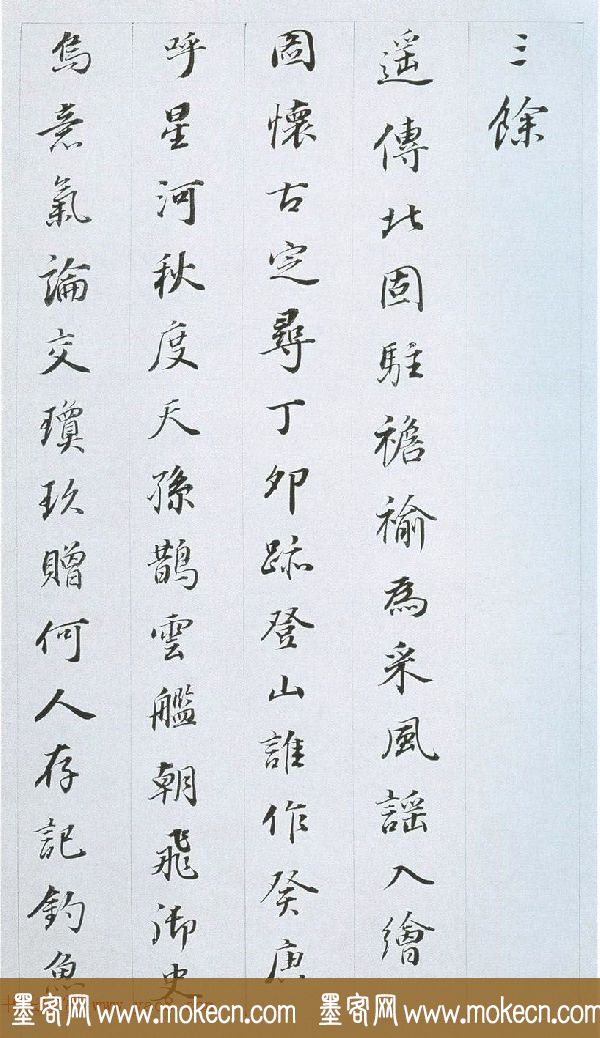 三餘
遥傳北固駐襜褕為采風謡入繪
圖懷古定尋丁卯跡登山誰作癸庚
呼星河秋度天孫鵲雲艦朝飛御史
烏意氣論交瓊玖贈何人存記釣魚
墨客网 www.mokecn.com 墨客网 www.mokecn.com